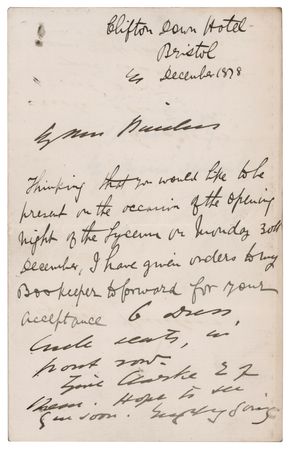 Clifton Down Hotel
Bristol
December 1878
My dear
Thinking that you would like to be
present on the occasion of the opening
night of the Lyceum on Monday 30th
December, I have given orders to my
Bookeeper to forward for your
acceptance 6 Dress
Circle seats, in
front row.
Give Clarke 2 of
them. Hope to see
you soon.